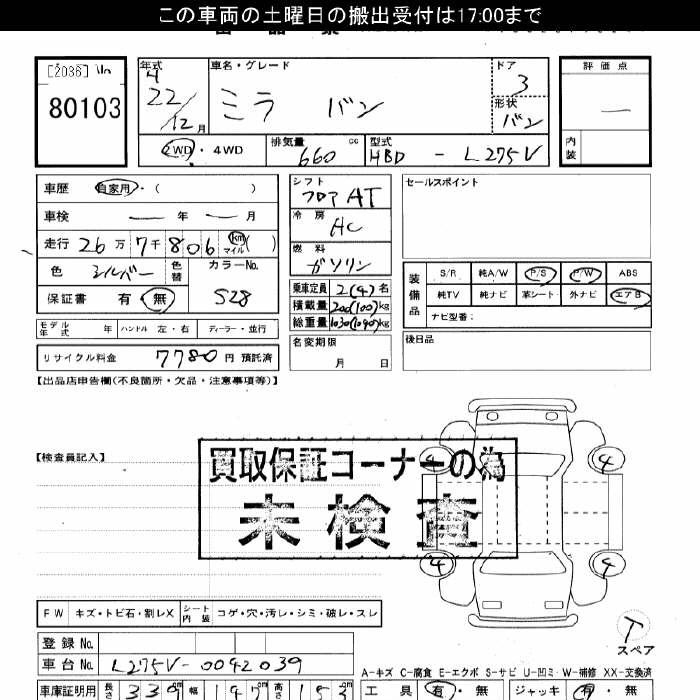 この車両の土曜日の搬出受付は17:00まで
[2036]
80103
年式 車名・グレード ドア 評価点
4
22/12月 ミラ バン 3
形状
バン
内装
2WD・4WD 排気量 660 cc 型式 HBD - L275V
車歴 自家用・( )
車検 ー 年 ー 月
走行 26万7千806 km マイル ( )
色 シルバー 色替 カラーNo. S28
保証書 有・無
シフト フロア AT
冷房 AC
燃料 ガソリン
乗車定員 2(4)名
積載量 200(100)kg
総重量 1030(1090)kg
名変期限
月 日
セールスポイント
装備品 S/R 純A/W P/S P/W ABS
純TV 純ナビ 革シート 外ナビ エアB
ナビ型番:
後日品
モデル年式 年 ハンドル 左・右 ディーラー・並行
リサイクル料金 7780 円 預託済
【出品店申告欄(不良箇所・欠品・注意事項等)】
【検査員記入】
買取保証コーナーの為
未検査
4 4
4 4
FW キズ・トビ石・割レX シート内装 コゲ・穴・汚レ・シミ・破レ・スレ
T
スペア
登録No.
車台No. L275V-0042039
A-キズ C-腐食 E-エクボ S-サビ U-凹ミ W-補修 XX-交換済
車庫証明用 長さ 339 cm 幅 147 cm 高さ 153 cm
工具 有・無 ジャッキ 有・無